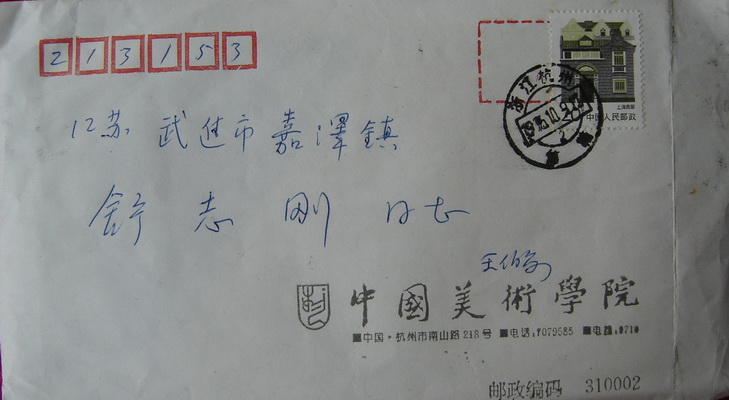 213153
上海民居
20
中国人民邮政
浙江杭州
江苏 武进市嘉澤鎮
舒志刚 同志
王伯敏
中國美術學院
■中国·杭州市南山路218号 ■电话:7079585 ■电挂:0710
邮政编码 310002